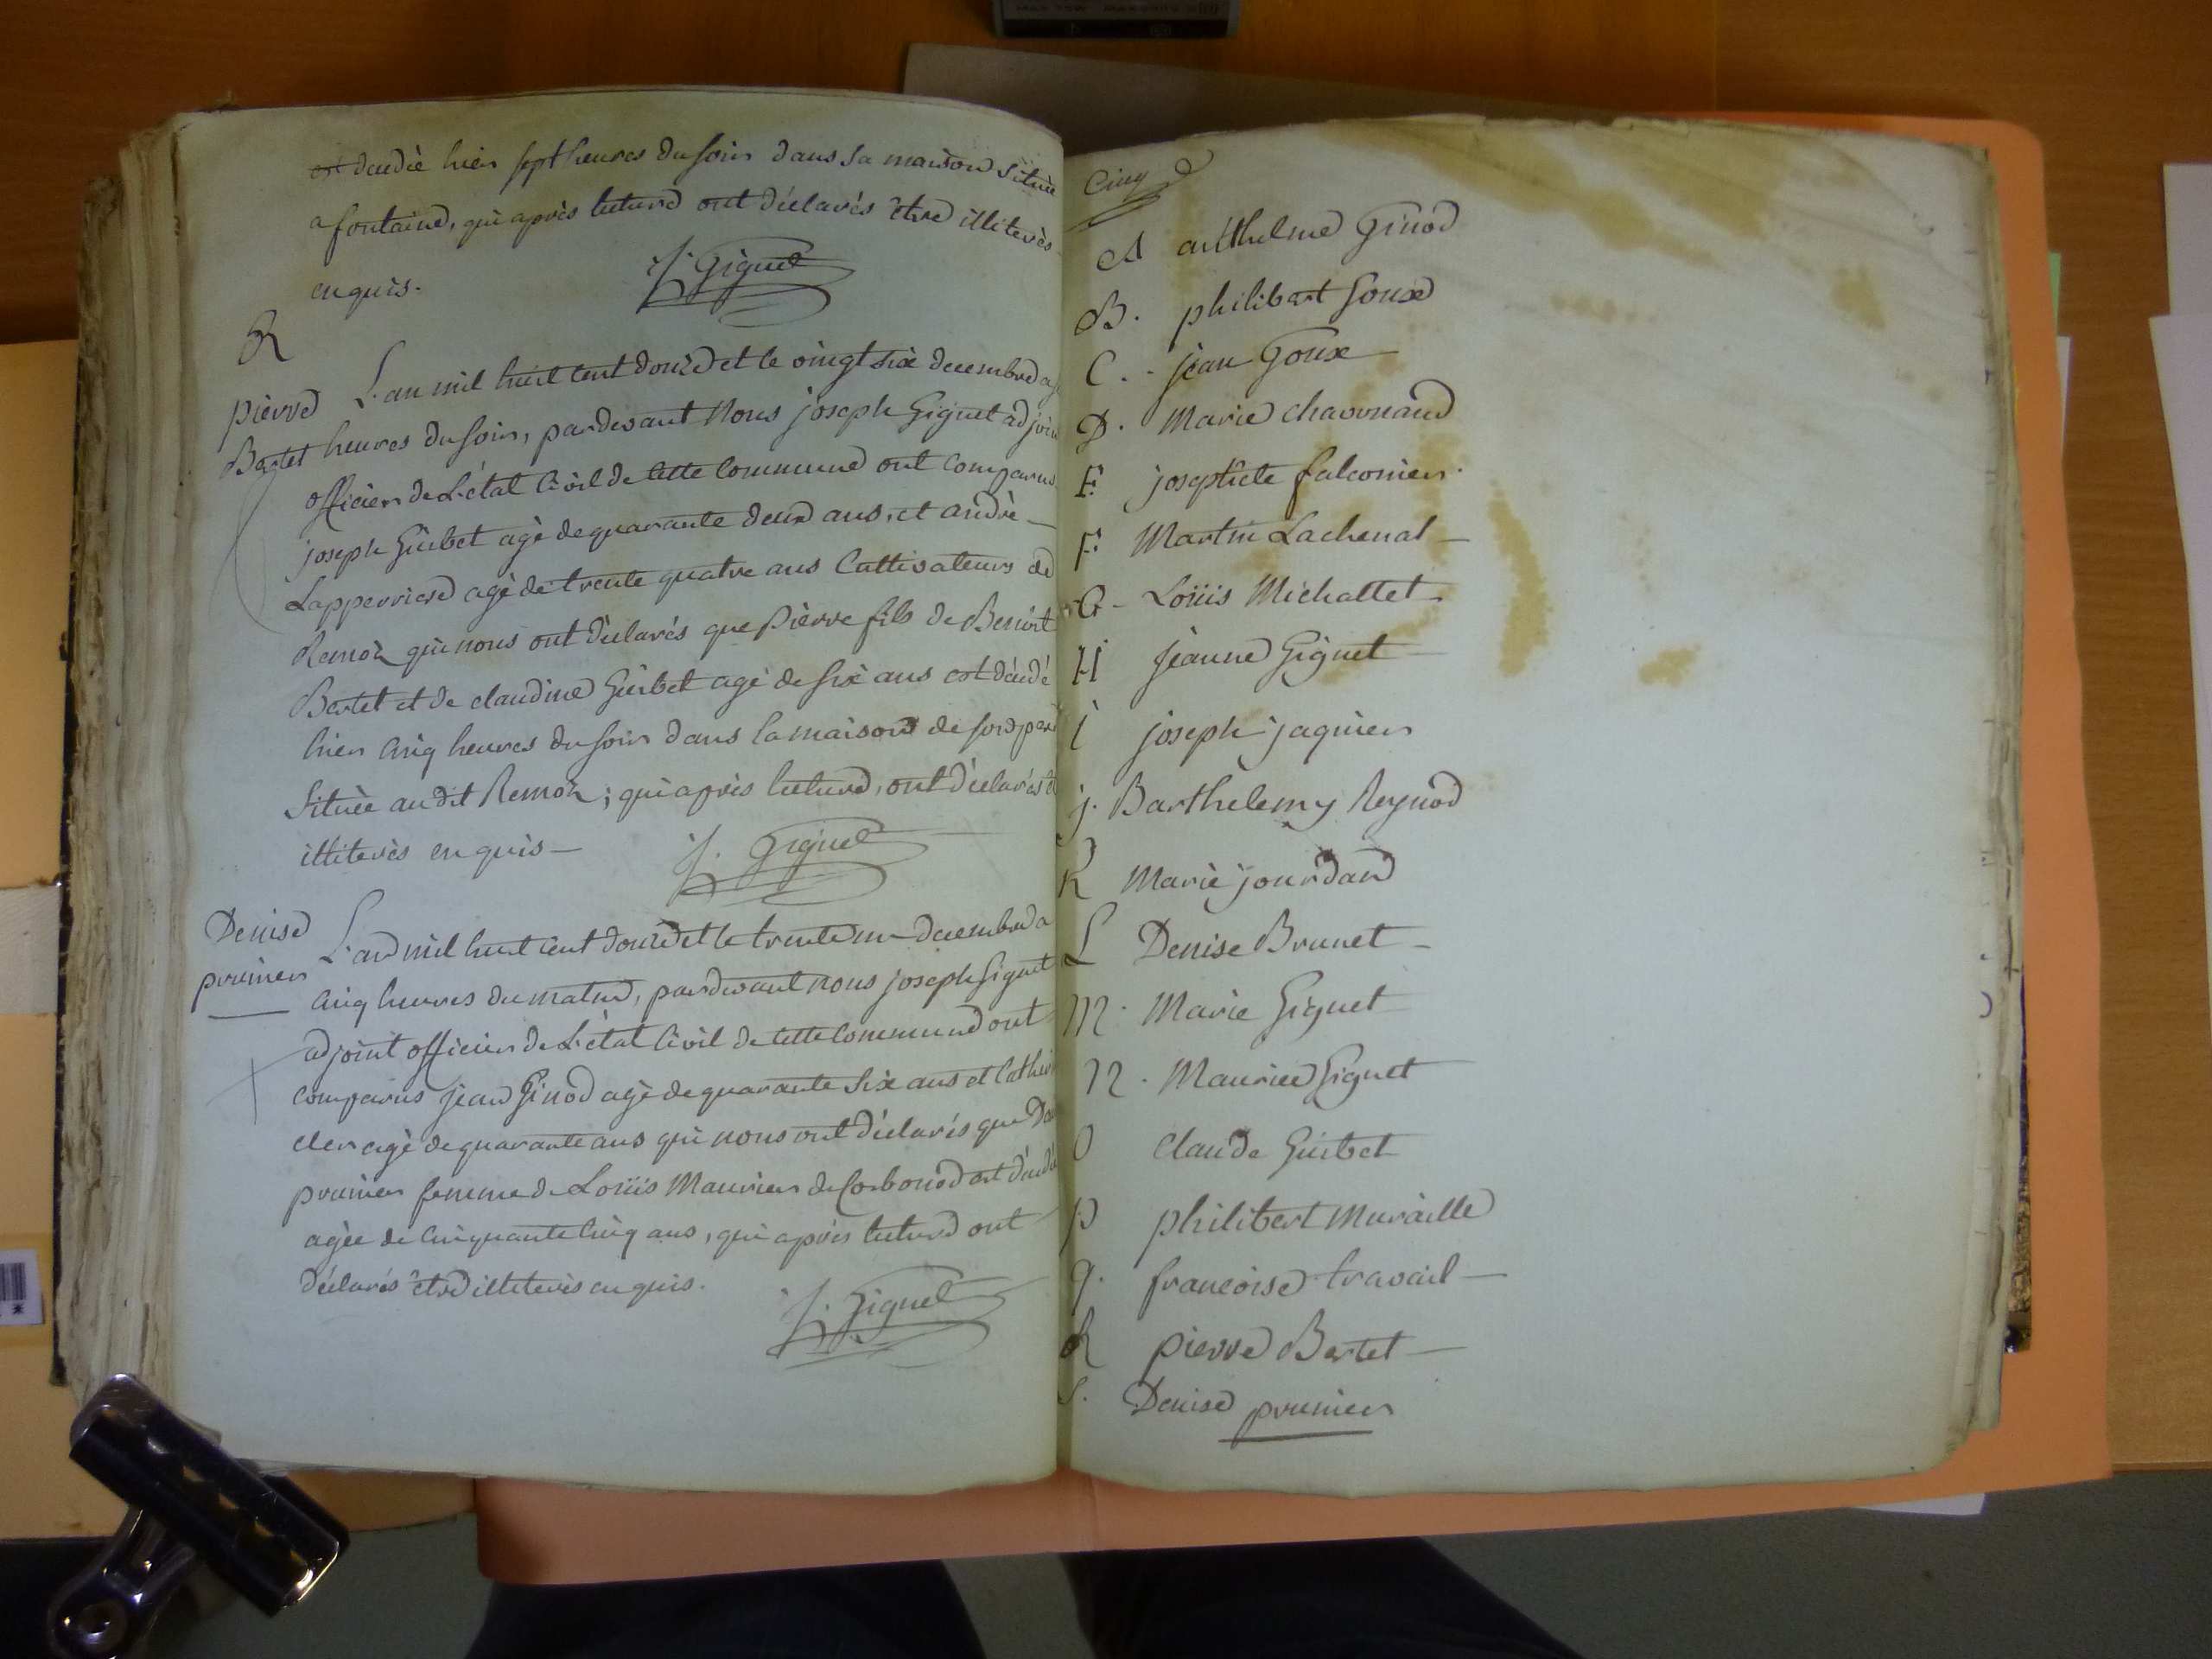 est décédé hier sept heures du soir dans sa maison située
a fontaine, qui après lecture ont déclarés être illiterés
enquis.
J. Giguet
R
pierre
Bertet
L'an mil huit cent douze et le vingt six decembre a
heures du soir, pardevant Nous joseph Giguet adjoin
officier de L'état Civil de cette Commune ont comparus
joseph Guibet agé de quarante deux ans, et andré
Lapperriere agé de trente quatre ans Cultivateurs de
Remoz qui nous ont déclarés que Pierre fils de Benoit
Bertet et de claudine Guibet agé de six ans est décédé
hier cinq heures du soir dans la maison de son pere
Située audit Remoz ; qui après lecture, ont déclarés
illiterés enquis
J. Giguet
Denise
prunier
L'an mil huit cent douze et le trente un decembre a
cinq heures du matin, pardevant nous joseph Giguet
adjoint officier de L'état Civil de cette Commune ont
comparus jean Ginod agé de quarante six ans et Cathe
cler agé de quarante ans qui nous ont déclarés que De
prunier femme de Loüis Maurier de Corbonod est décédé
agée de cinquante cinq ans, qui après lecture ont
déclarés être illiterés enquis.
J. Giguet
Cinq
A anthelme Ginod
B. philibert Goux
C. jean Goux
D. Marie chavonand
E josephte falconier
F Martin Lachenal
G Loüis Michallet
H Jeanne Giguet
i joseph jaquier
j. Barthélemy Reynod
K Marie jourdan
L Denise Brunet
M. Marie Giguet
N. Maurice Giguet
O Claude Guibet
p philibert Muraille
q. francoise travail
R pierre Bertet
S. Denise prunier